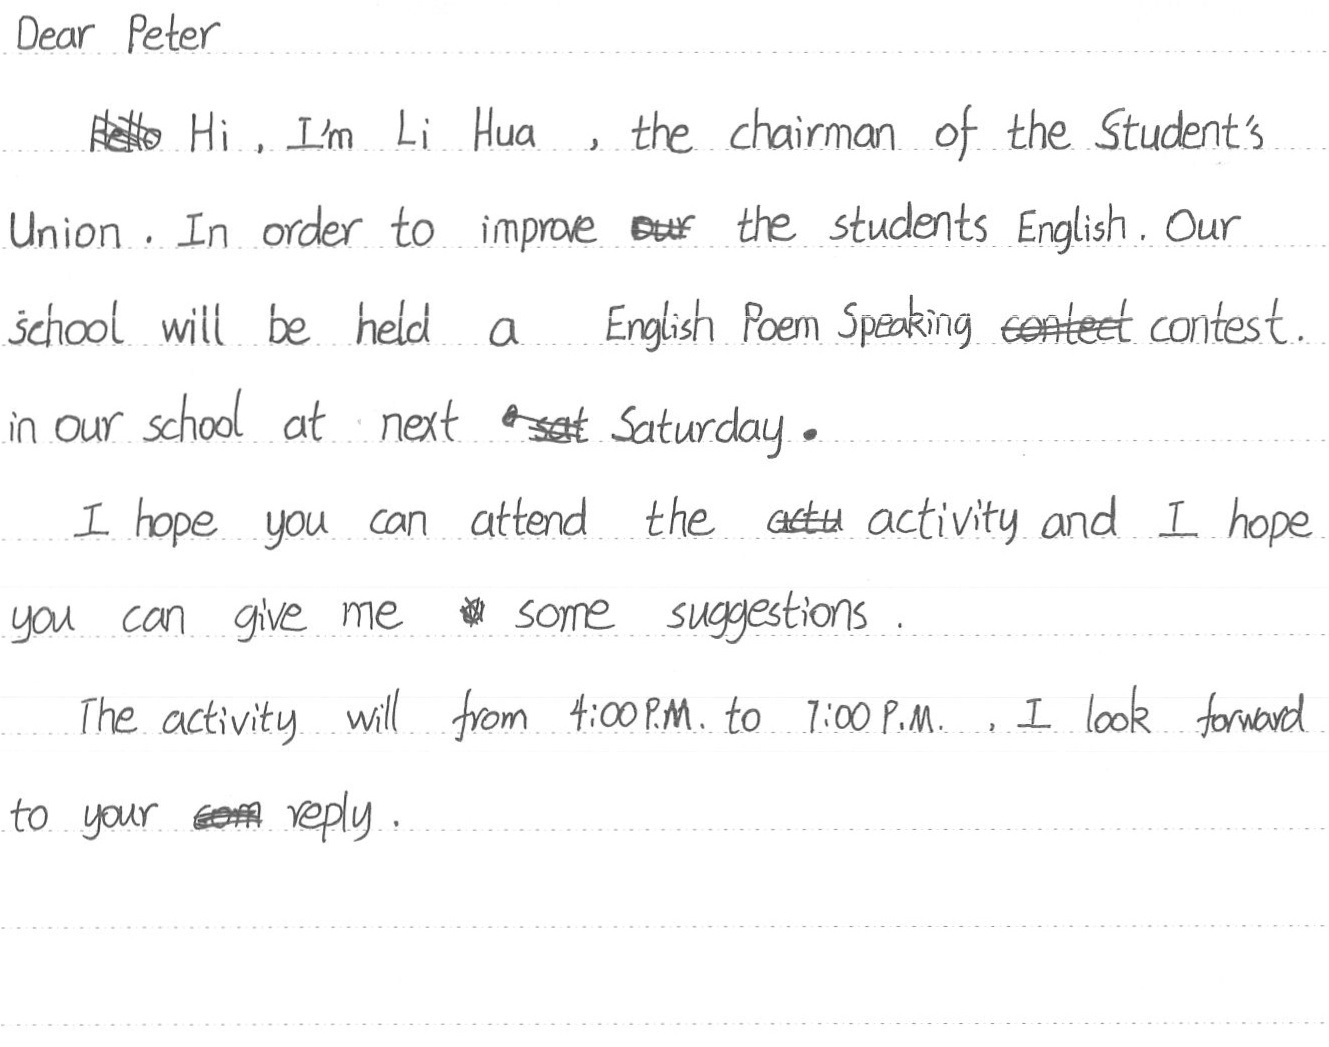 Dear Peter
Hi, I'm Li Hua, the chairman of the Student's
Union. In order to improve the students English. Our
school will be held a English Poem Speaking contest.
in our school at next Saturday.
I hope you can attend the activity and I hope
you can give me some suggestions.
The activity will from 4:00 P.M. to 7:00 P.M. , I look forward
to your reply.